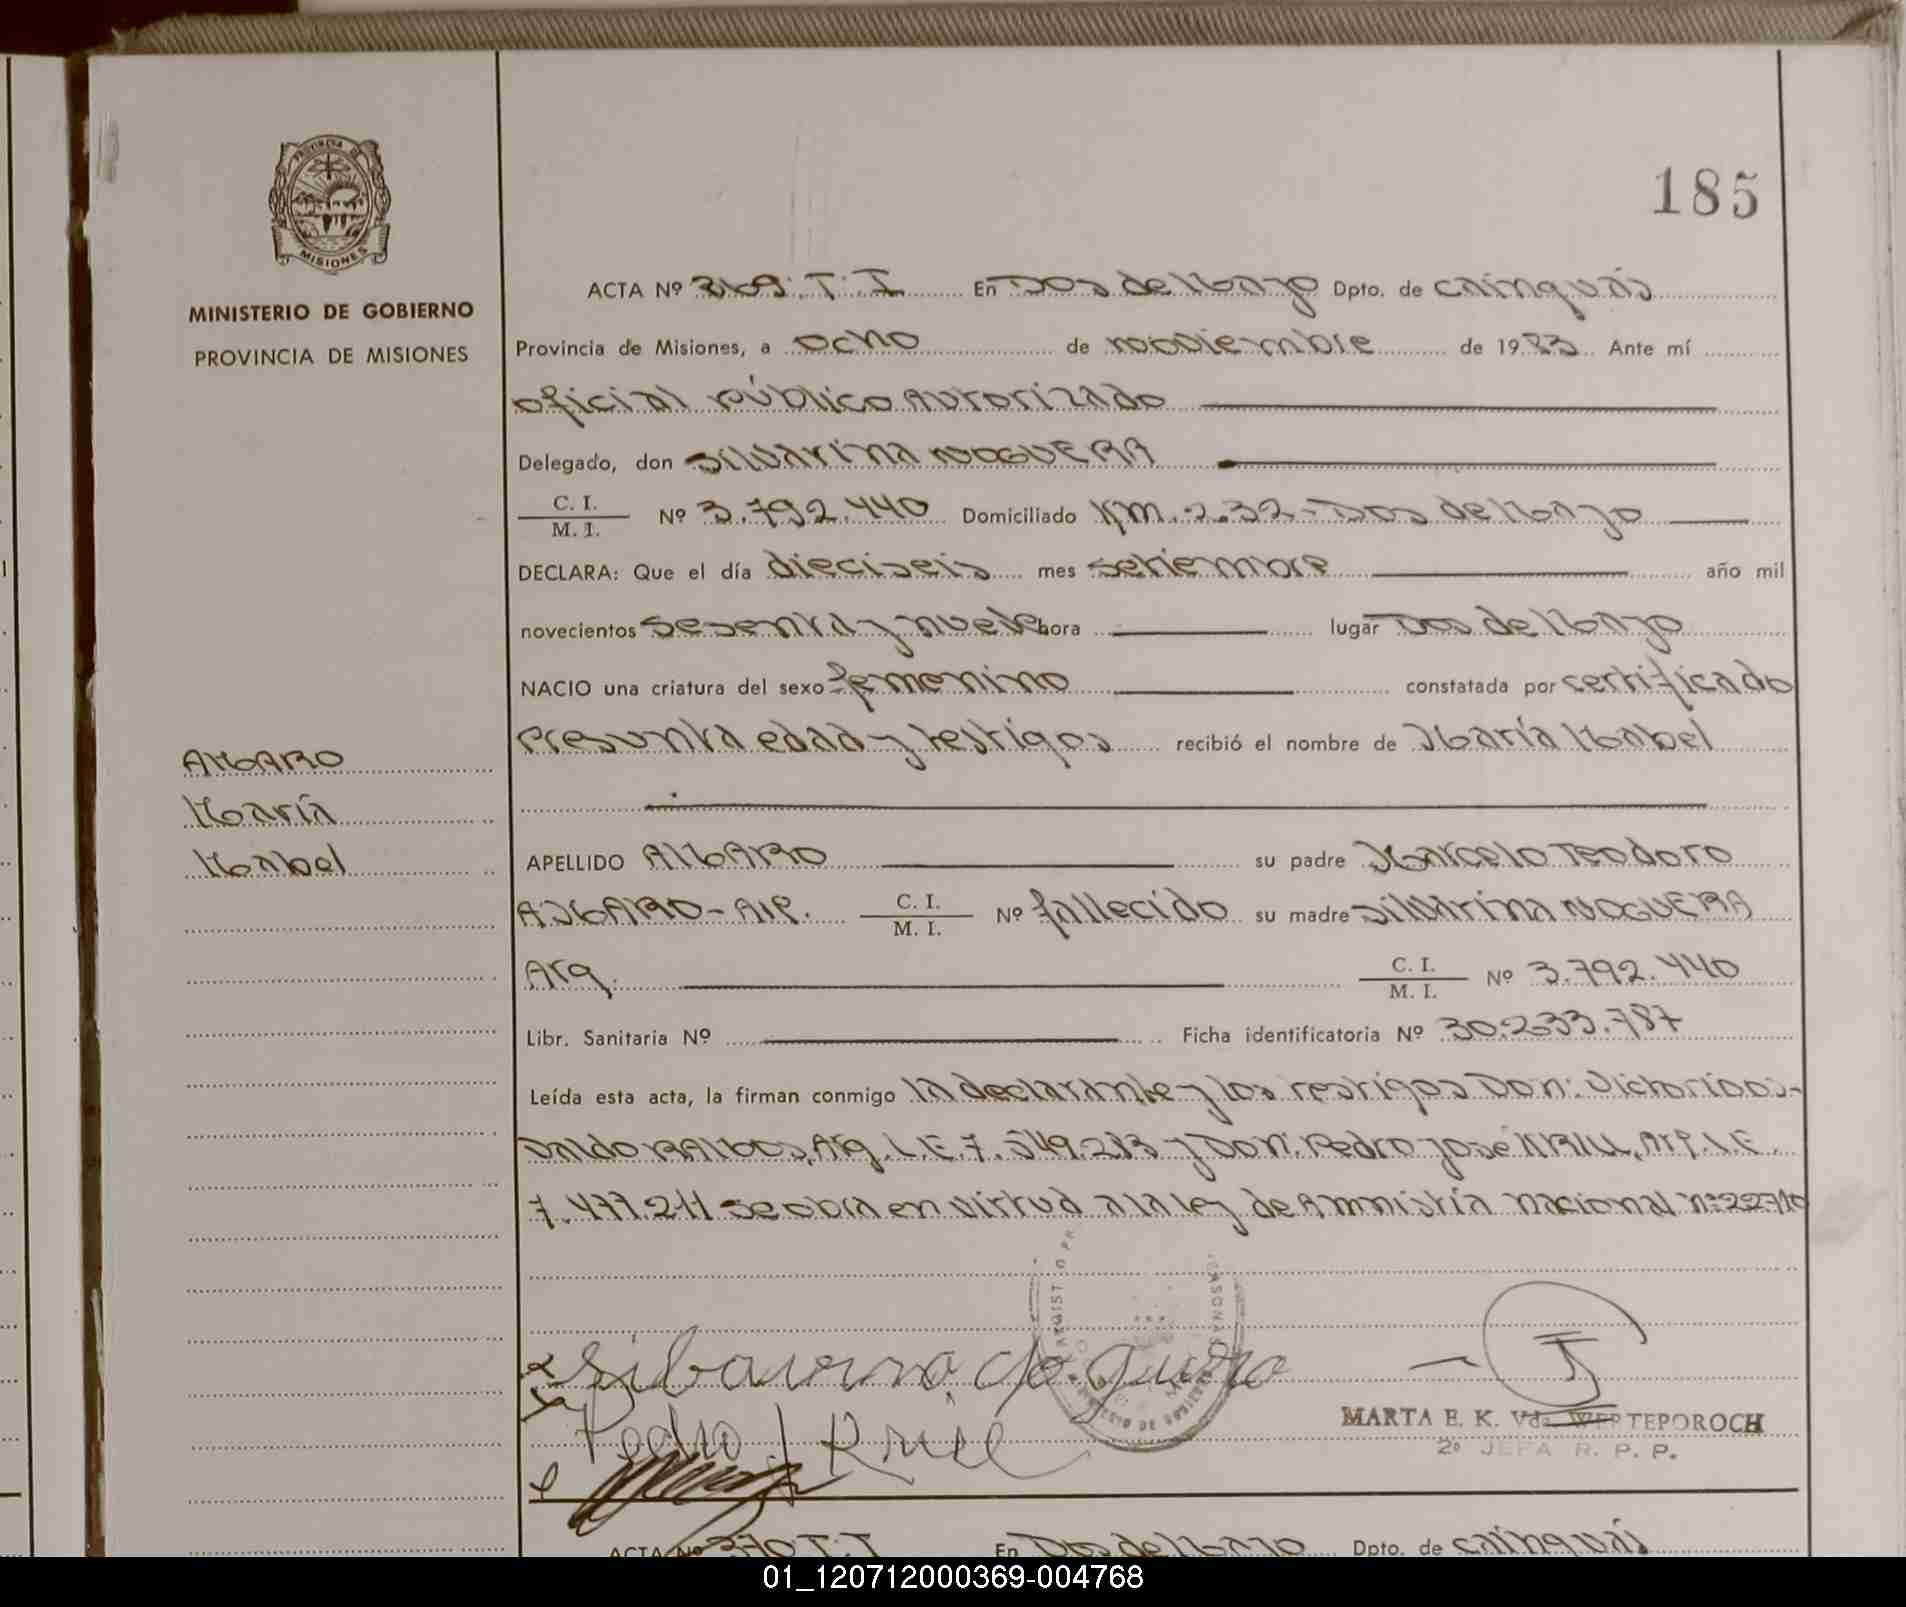 185
PROVINCIA DE
MISIONES
MINISTERIO DE GOBIERNO
PROVINCIA DE MISIONES
ACTA Nº 369. T. I En Dos de Mayo Dpto. de Cainguás
Provincia de Misiones, a ocho de noviembre de 1983 Ante mí
oficial público autorizado
Delegado, don Silvarina NOGUERA
C. I. / M. I. Nº 3.792.440 Domiciliado Km. 232 - Dos de Mayo
DECLARA: Que el día dieciseis mes setiembre año mil
novecientos sesenta y nueve hora lugar Dos de Mayo
NACIO una criatura del sexo femenino constatada por certificado
presunta edad y testigos recibió el nombre de María Mabel
AMARO
María
Mabel
APELLIDO AMARO su padre Marcelo Teodoro
AMARO - C. I. / M. I. Nº fallecido su madre Silvarina NOGUERA
Arg. C. I. / M. I. Nº 3.792.440
Libr. Sanitaria Nº Ficha identificatoria Nº 30.233.787
Leída esta acta, la firman conmigo la declarante y los testigos Don:
RAMOS, Arg. L.E. 7.549.283 y Don: Pedro José L.E.
7.477.211 se obra en virtud a la ley de Amnistía Nacional nº
Pedro J
MARTA E. K. Vda. WERTEPOROCH
2º JEFA R. P. P.
ACTA Nº 370 T. I En Dos de Mayo Dpto. de Cainguás
01_120712000369-004768